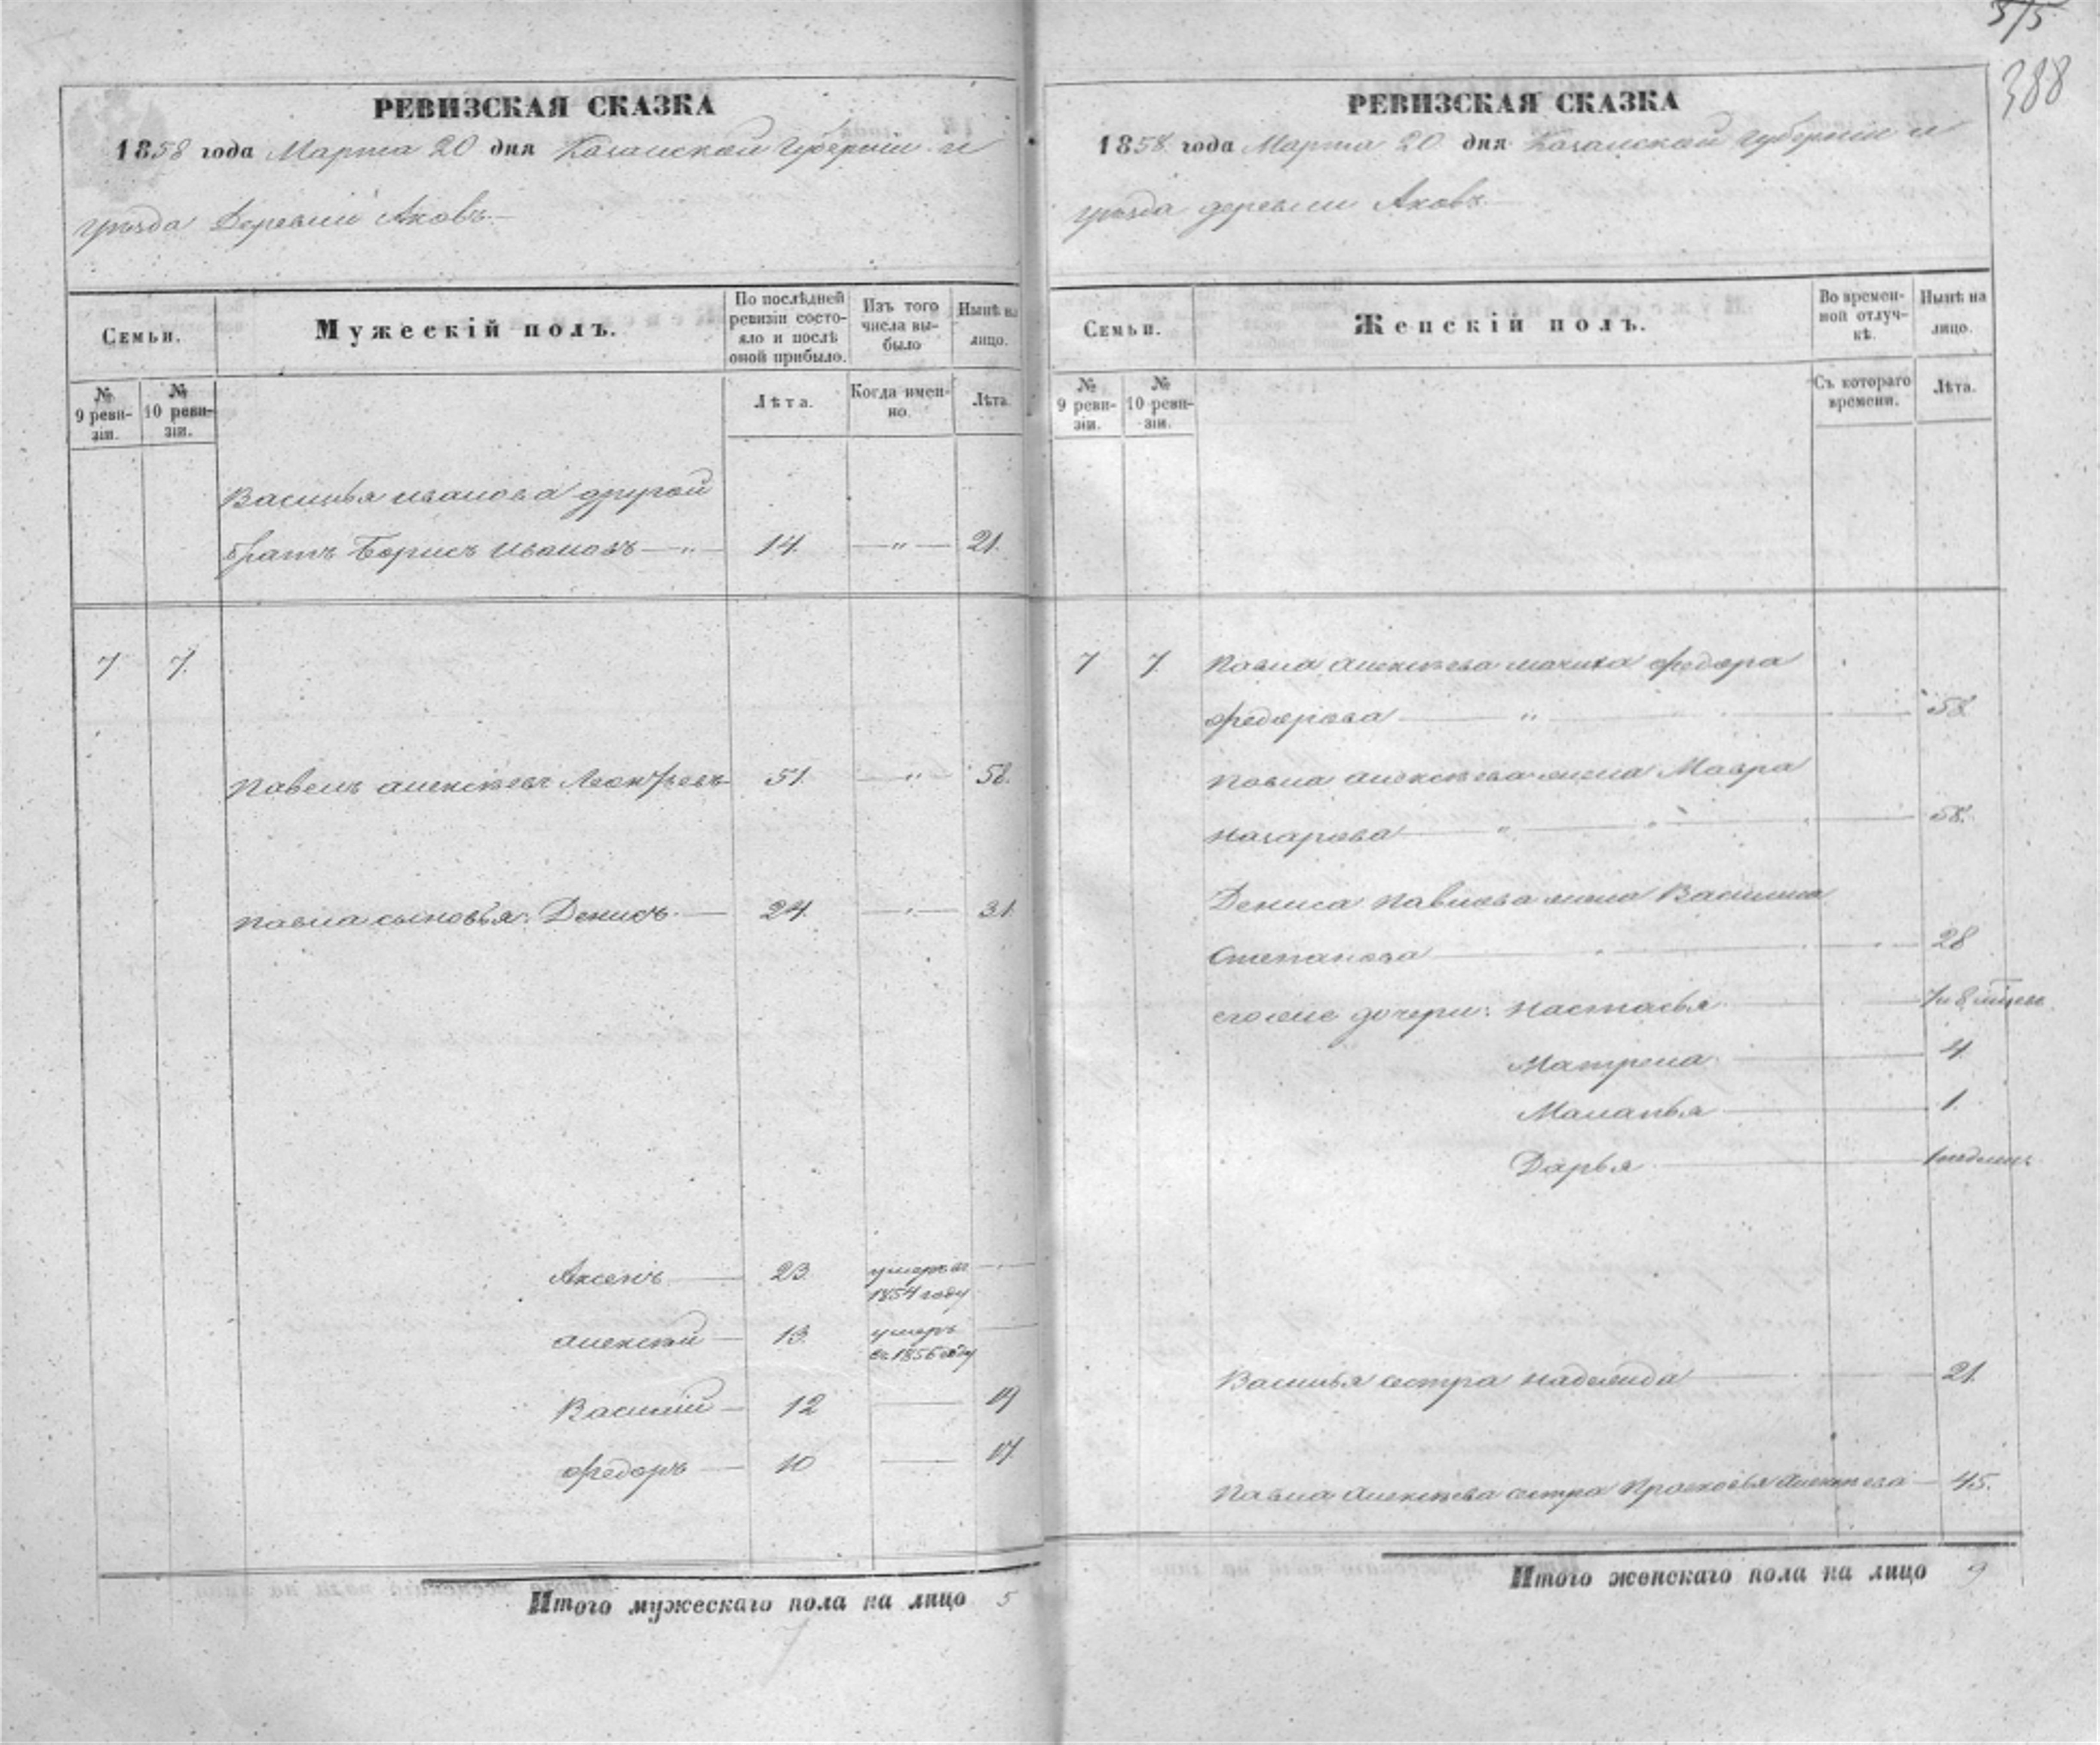 515
388
РЕВИЗСКАЯ СКАЗКА
1858 года Марта 20 дня Казанской Губерніи и
уѣзда Деревни Аковъ.
Семьи.
Мужескій полъ.
По послѣдней ревизіи состояло и послѣ оной прибыло.
Изъ того числа выбыло
Нынѣ на лицо.
№ 9 ревизіи.
№ 10 ревизіи.
Лѣта.
Когда именно.
Лѣта.
Василья Иванова другой
братъ Борисъ Ивановъ — " — 14. — " — 21.
7 7.
Павелъ Алексѣевъ Леонтьевъ 51. — " — 58.
Павла сыновья: Денисъ. — 24. — " — 31.
Аксенъ — 23. умеръ въ
1854 году
Алексѣй — 13. умеръ
въ 1856 году
Василій — 12 — 19
Федоръ — 10 — 17.
Итого мужескаго пола на лицо 5
РЕВИЗСКАЯ СКАЗКА
1858 года Марта 20 дня Казанской губерніи и
уѣзда деревни Аковъ.
Семьи.
Женскій полъ.
Во временной отлучкѣ.
Нынѣ на лицо.
№ 9 ревизіи.
№ 10 ревизіи.
Съ котораго времени.
Лѣта.
7 7. Павла Алексѣева мачиха Федора
Федорова — " — 58
Павла Алексѣева жена Мавра
Назарова — " — 58.
Дениса Павлова жена Василиса
Степанова — 28
его же дочери: Настасья — 7 и 8 мѣсец.
Матрена — 4
Маланья — 1.
Дарья — 1 недѣли
Василья сестра Надежда — 21.
Павла Алексѣева сестра Прасковья Алексѣева — 45.
Итого женскаго пола на лицо 9